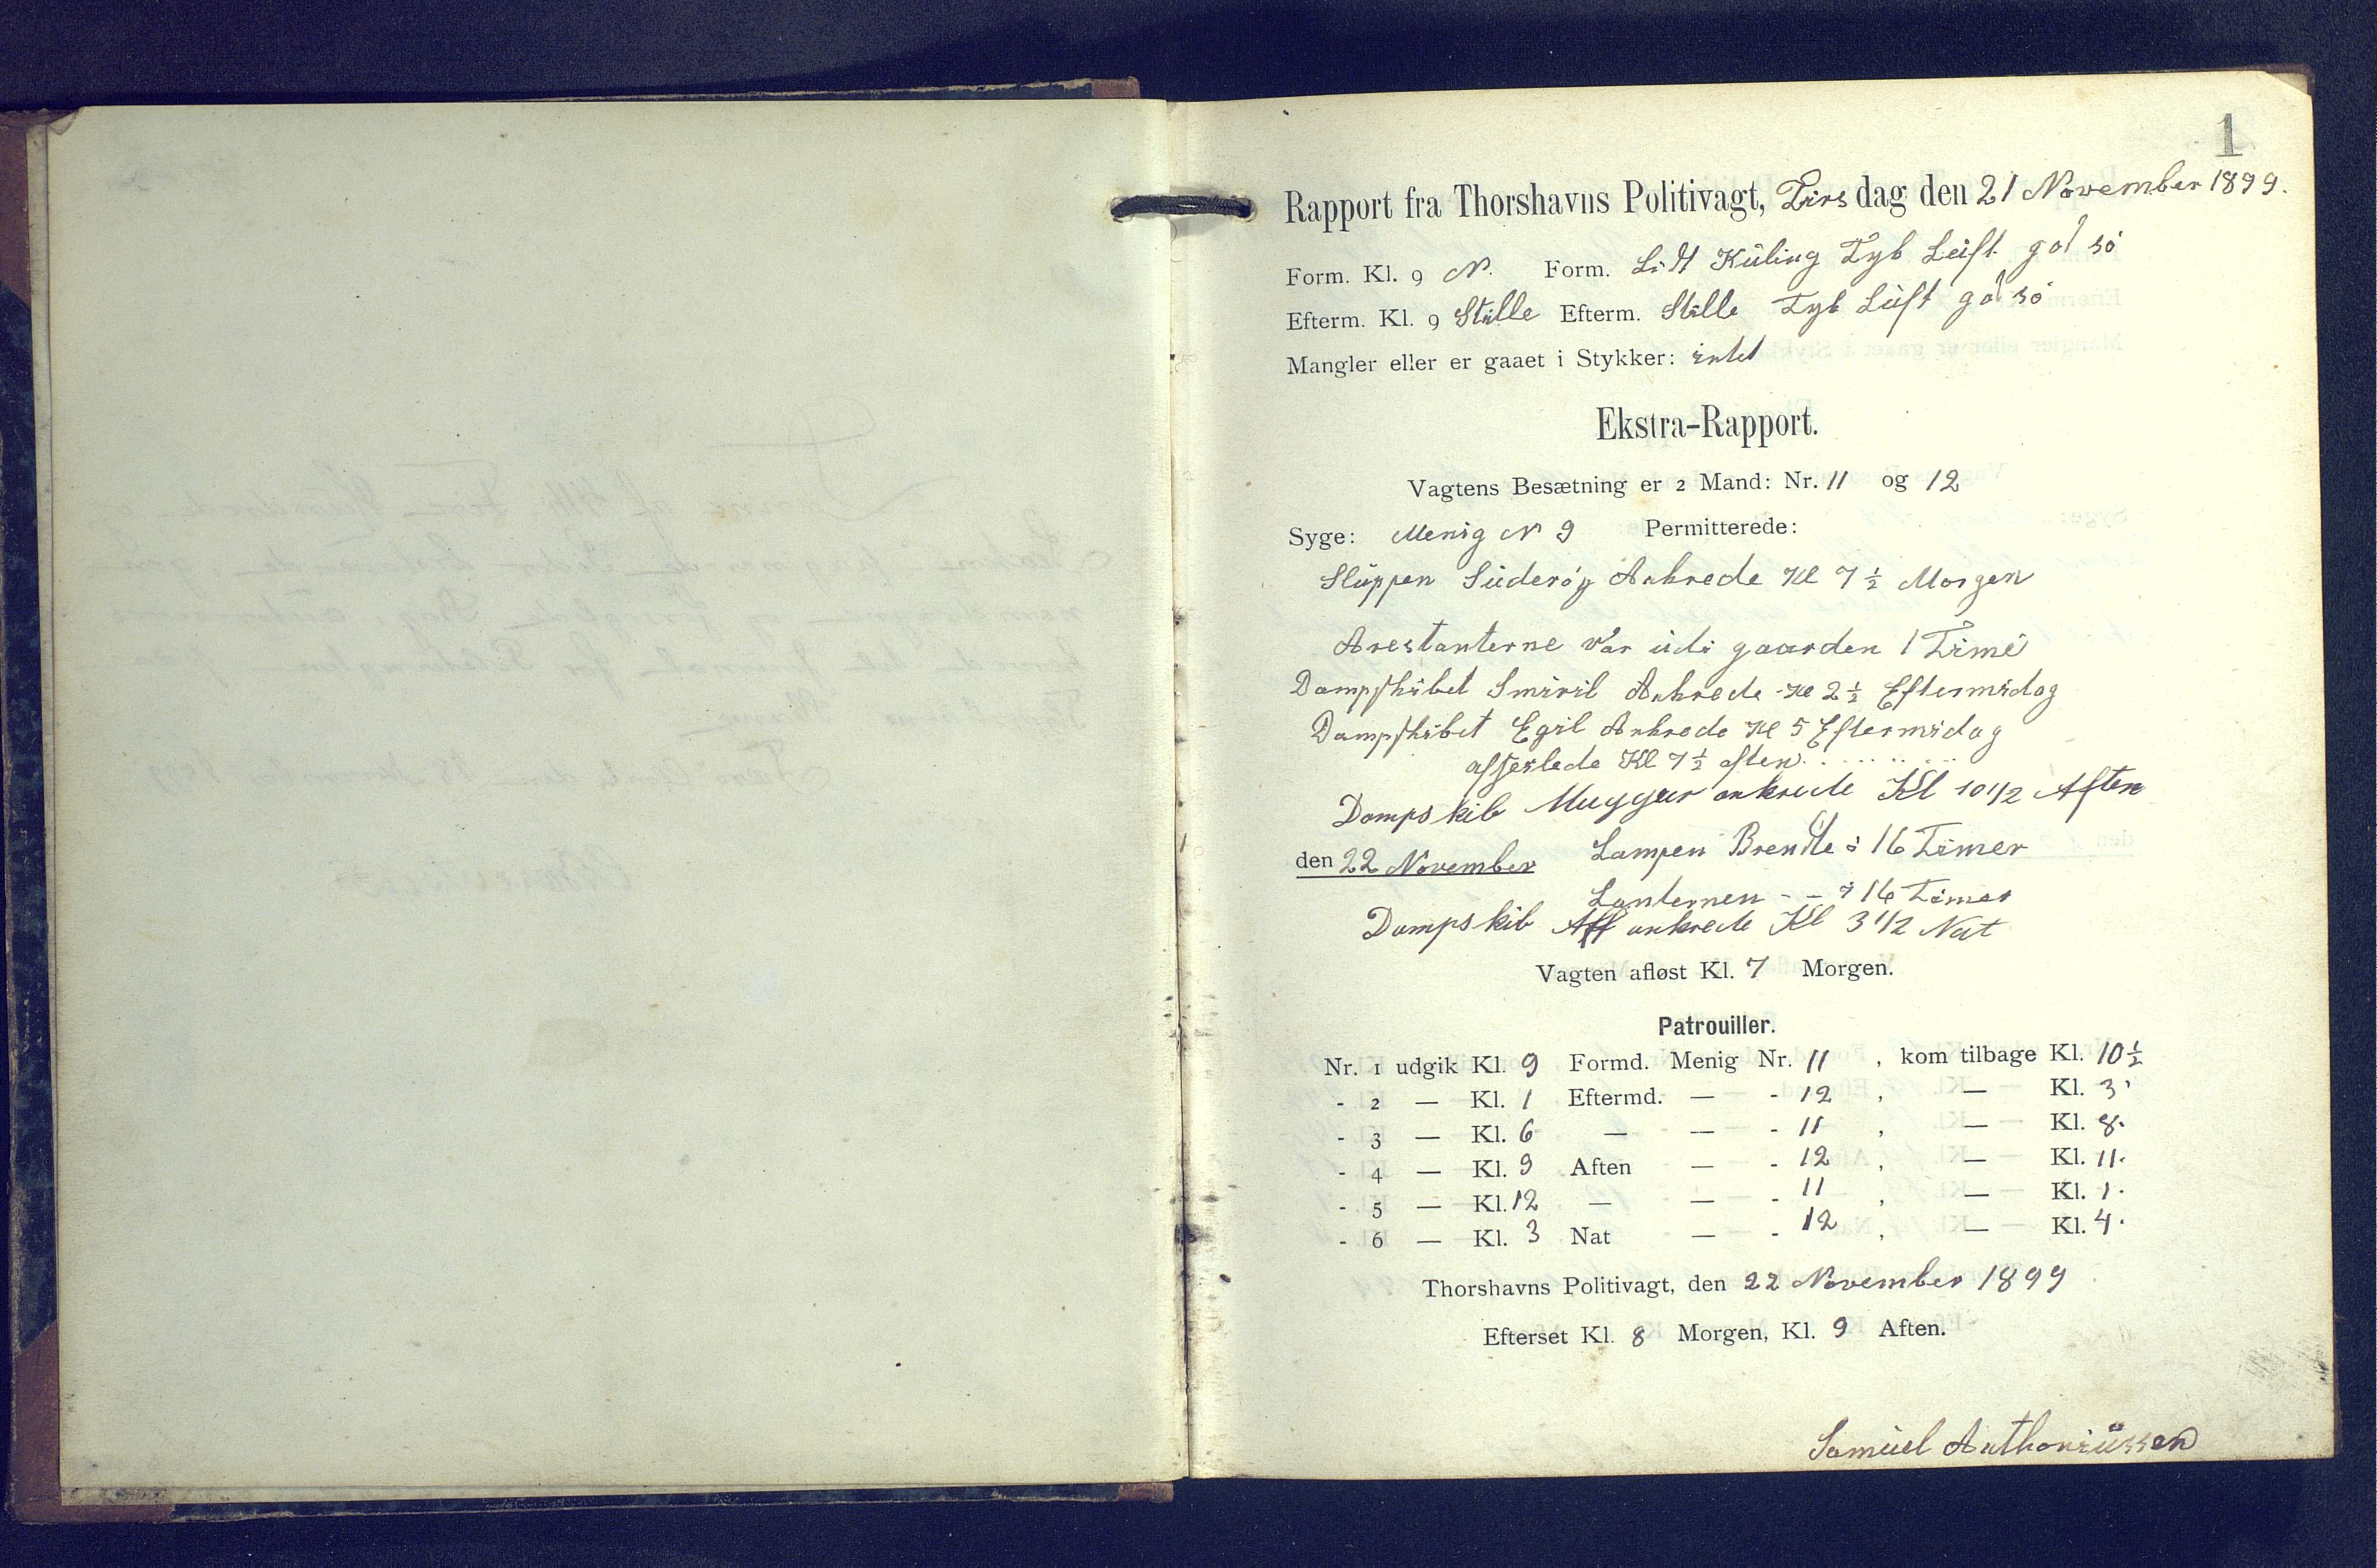 1
Rapport fra Thorshavns Politivagt, Tirsdag den 21 November 1899.
Form. Kl. 9 N. Form. Lidt Küling Tyk Lüft god sö
Efterm. Kl. 9 Stille Efterm. Stille Tyk Lüft god sö
Mangler eller er gaaet i Stykker: intet
Ekstra-Rapport.
Vagtens Besætning er 2 Mand: Nr. 11 og 12
Syge: Menig N 9 Permitterede:
Slüppen Süderöy Ankrede Kl 7 ½ Morgen
Arestanterne var üdi gaarden 1 Time
Dampskibet Smiril Ankrede Kl 2 ½ Eftermidag
Dampskibet Egil Ankrede Kl 5 Eftermidag
afseslede Kl 7 ½ aften
Dampskib Muggur ankrede Kl 10 1/2 Aften
den 22 November Lampen Brendte i 16 Timer
Lanternen - - i 16 Timer
Dampskib ankrede Kl 3 1/2 Nat
Vagten afløst Kl. 7 Morgen.
Patrouiller.
Nr. 1 udgik Kl. 9 Formd. Menig Nr. 11 , kom tilbage Kl. 10 ½
- 2 — Kl. 1 Eftermd. — - 12 , — Kl. 3
- 3 — Kl. 6 — — - 11 , — Kl. 8.
- 4 — Kl. 9 Aften — - 12 , — Kl. 11.
- 5 — Kl. 12 — — - 11 , — Kl. 1.
- 6 — Kl. 3 Nat — - 12 , — Kl. 4.
Thorshavns Politivagt, den 22 November 1899
Efterset Kl. 8 Morgen, Kl. 9 Aften.
Samüel Anthoniüssen